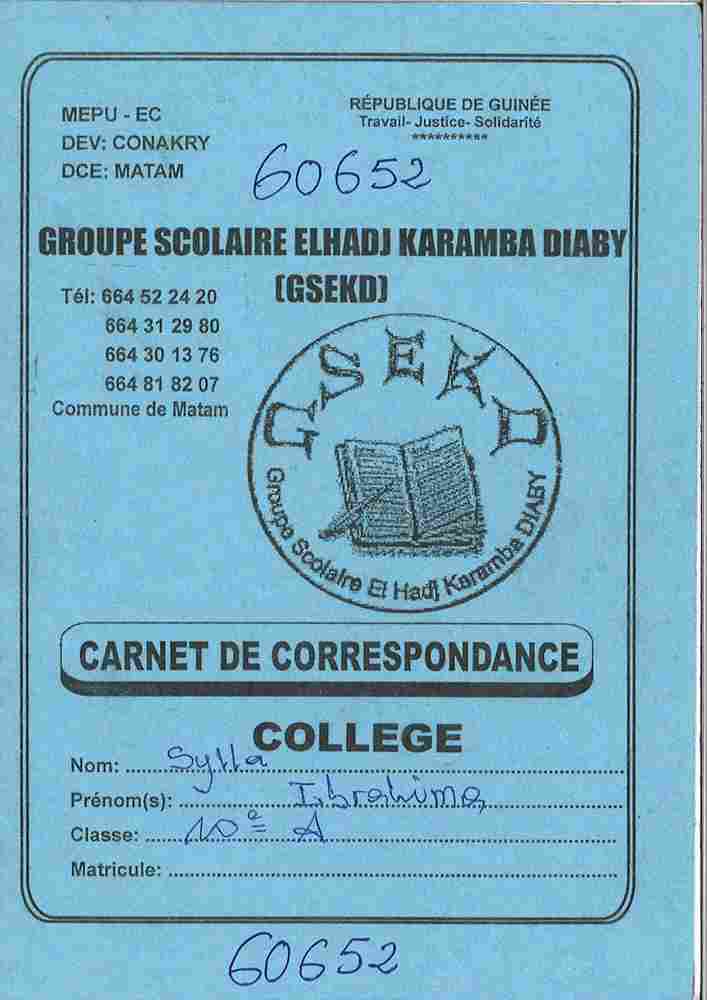 MEPU - EC
DEV: CONAKRY
DCE: MATAM
RÉPUBLIQUE DE GUINÉE
Travail- Justice- Solidarité
**********
60652
GROUPE SCOLAIRE ELHADJ KARAMBA DIABY
(GSEKD)
Tél: 664 52 24 20
664 31 29 80
664 30 13 76
664 81 82 07
Commune de Matam
GSEKD
Groupe Scolaire El Hadj Karamba DIABY
CARNET DE CORRESPONDANCE
COLLEGE
Nom: Sylla
Prénom(s): Ibrahima
Classe: 10e A
Matricule:
60652